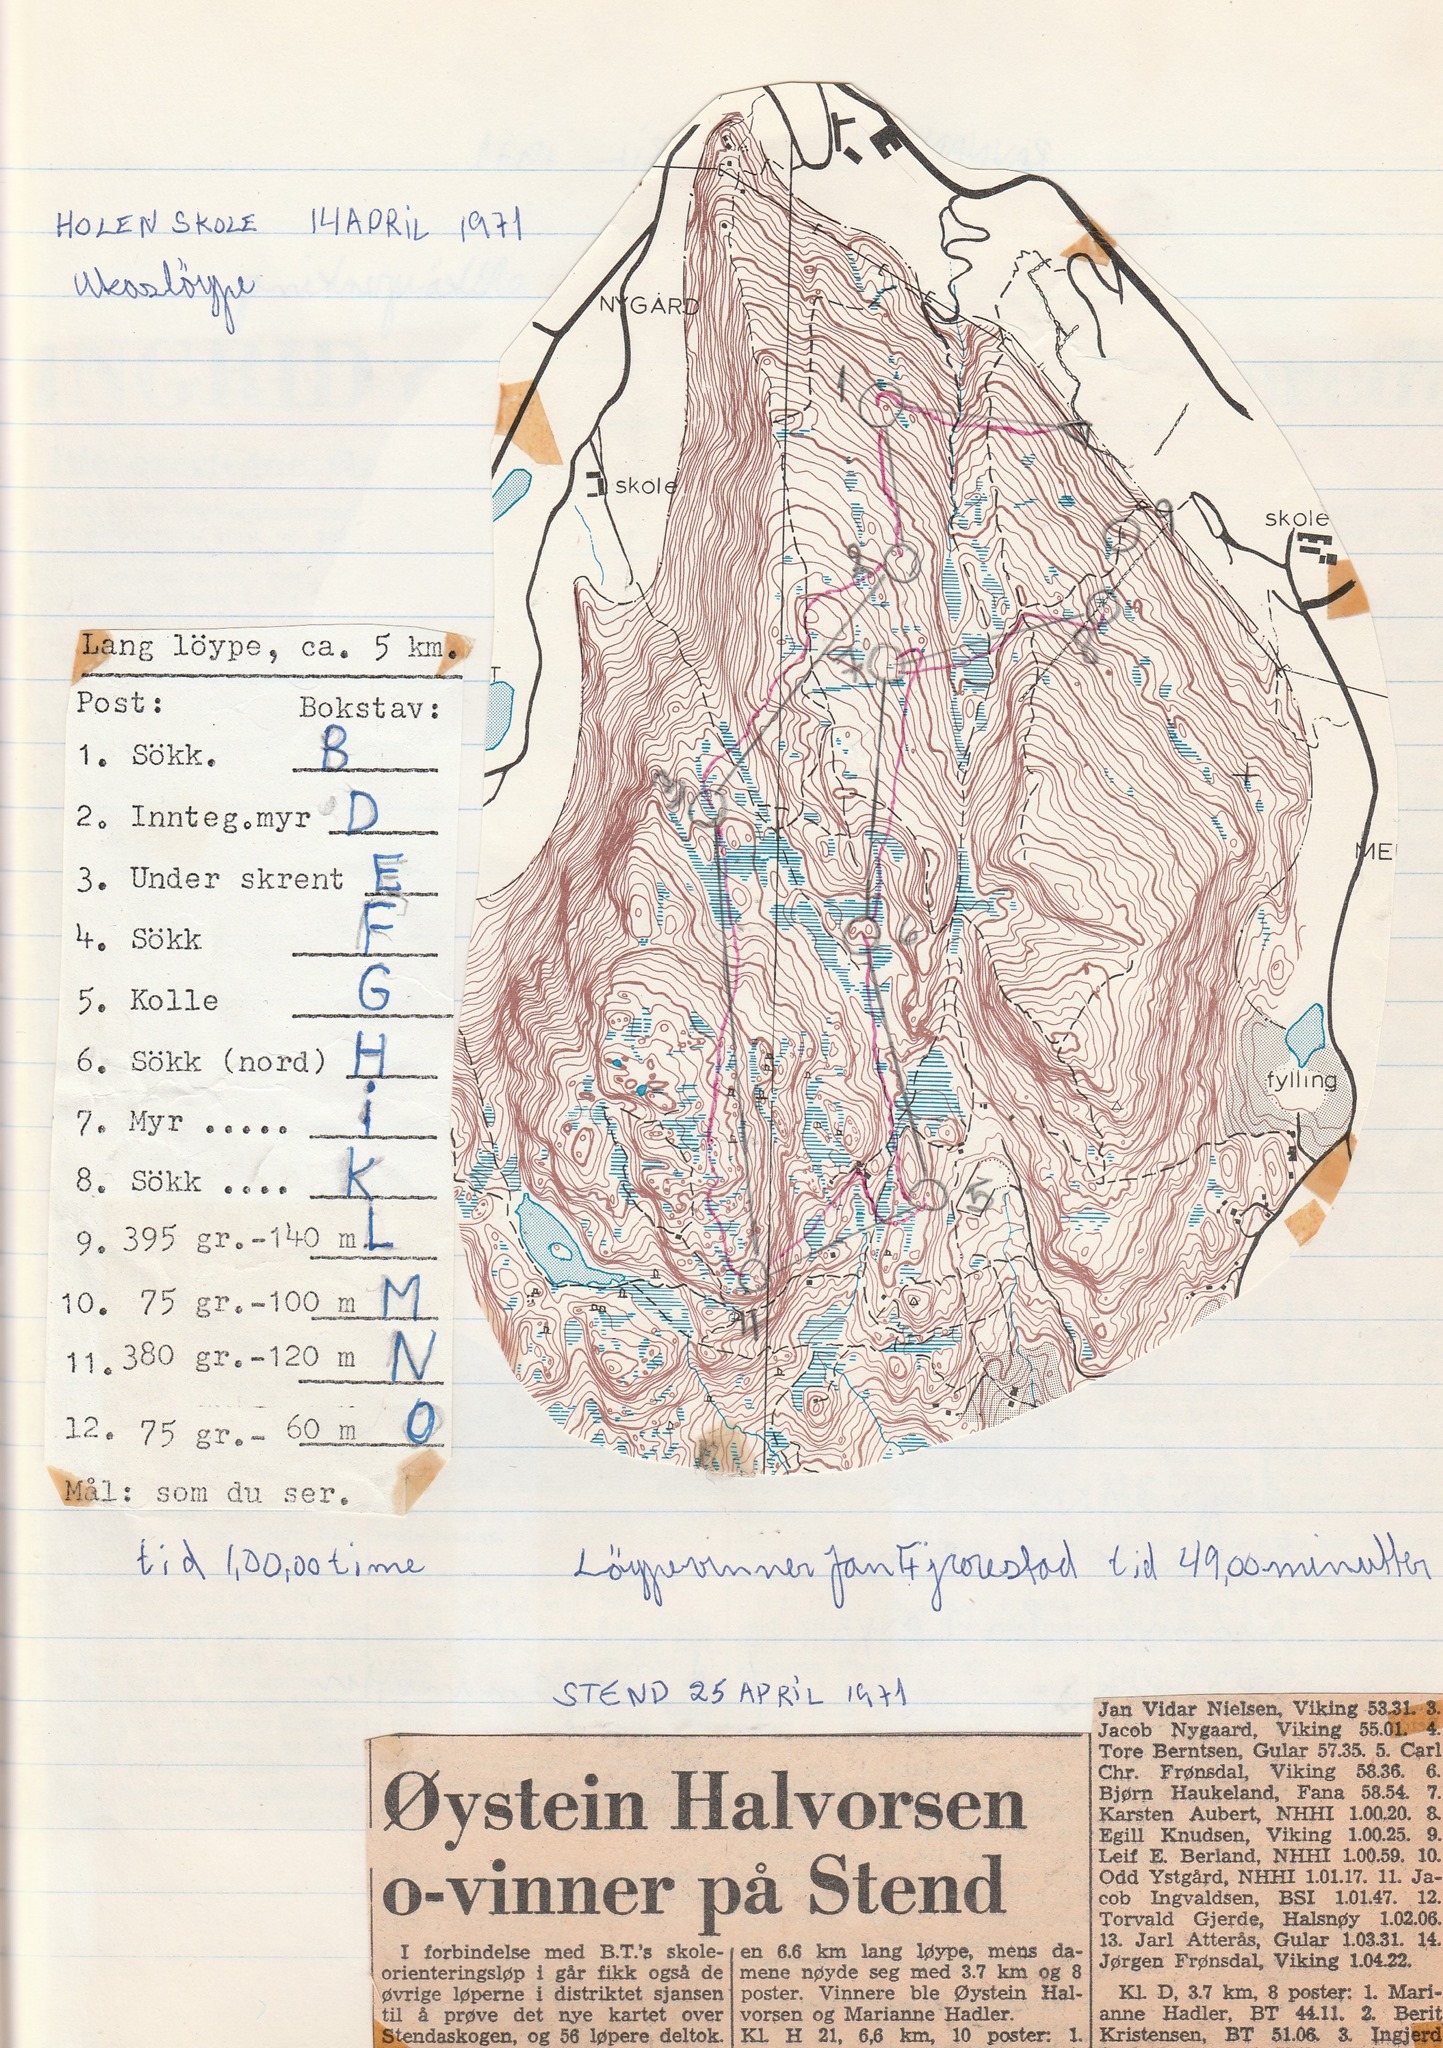 HOLEN SKOLE 14 APRIL 1971
Ukasløype
NYGÅRD
skole
skole
fylling
1
2
3
4
5
6
8
9
Lang löype, ca. 5 km.
Post: Bokstav:
1. Sökk. B
2. Innteg.myr D
3. Under skrent E
4. Sökk F
5. Kolle G
6. Sökk (nord) H
7. Myr ..... i
8. Sökk .... K
9. 395 gr.-140 m. L
10. 75 gr.-100 m M
11. 380 gr.-120 m N
12. 75 gr.- 60 m O
Mål: som du ser.
tid 1,00,00 time
Löypevinner Jan tid 49,00 minutter
STEND 25 APRIL 1971
Øystein Halvorsen
o-vinner på Stend
I forbindelse med B.T.'s skole-
orienteringsløp i går fikk også de
øvrige løperne i distriktet sjansen
til å prøve det nye kartet over
Stendaskogen, og 56 løpere deltok.
en 6.6 km lang løype, mens da-
mene nøyde seg med 3.7 km og 8
poster. Vinnere ble Øystein Hal-
vorsen og Marianne Hadler.
Kl. H 21, 6,6 km, 10 poster: 1.
Jan Vidar Nielsen, Viking 53.31. 3.
Jacob Nygaard, Viking 55.01. 4.
Tore Berntsen, Gular 57.35. 5. Carl
Chr. Frønsdal, Viking 58.36. 6.
Bjørn Haukeland, Fana 58.54. 7.
Karsten Aubert, NHHI 1.00.20. 8.
Egill Knudsen, Viking 1.00.25. 9.
Leif E. Berland, NHHI 1.00.59. 10.
Odd Ystgård, NHHI 1.01.17. 11. Ja-
cob Ingvaldsen, BSI 1.01.47. 12.
Torvald Gjerde, Halsnøy 1.02.06.
13. Jarl Atterås, Gular 1.03.31. 14.
Jørgen Frønsdal, Viking 1.04.22.
Kl. D, 3.7 km, 8 poster: 1. Mari-
anne Hadler, BT 44.11. 2. Berit
Kristensen, BT 51.06. 3. Ingjerd